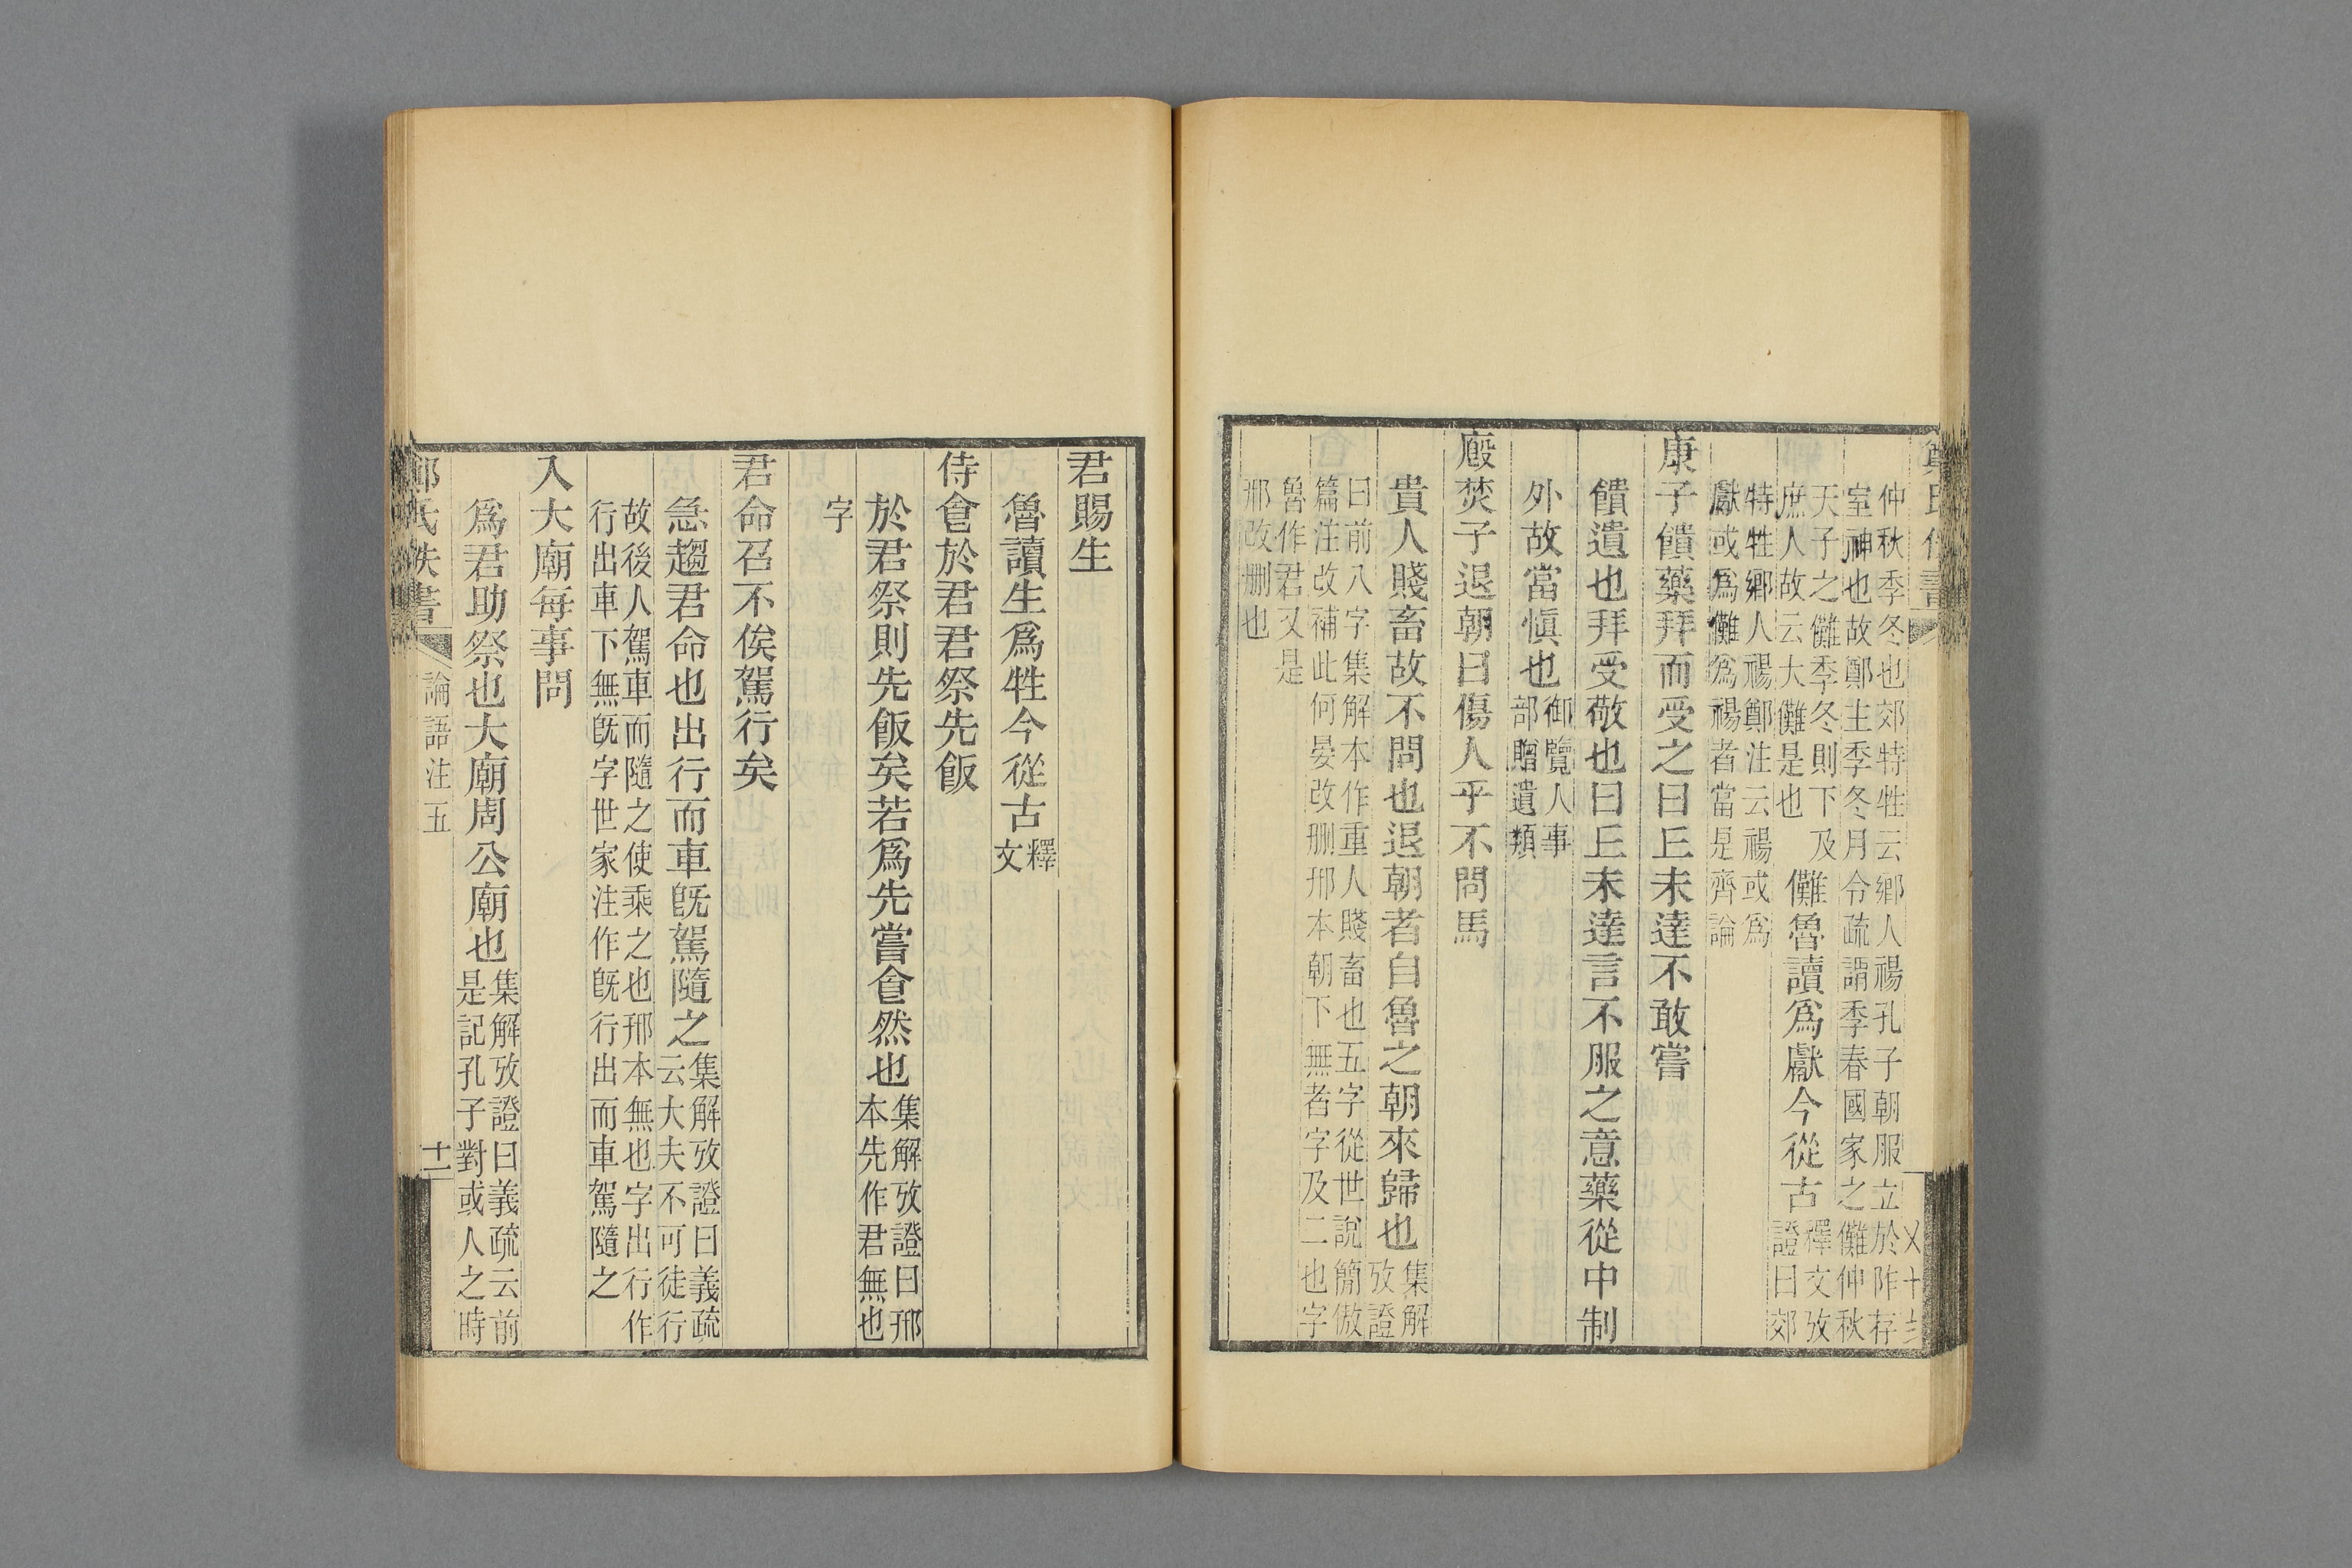 鄭氏佚書
仲秋季冬也郊特牲云鄉人禓孔子朝服立於阼存
室神也故鄭主季冬月令疏謂季春國家之儺仲秋
天子之儺季冬則下及
庶人故云大儺是也
儺魯讀爲獻今從古
釋文攷
證曰郊
特牲鄉人禓鄭注云禓或爲
獻或爲儺爲禓者當是齊論
康子饋藥拜而受之曰丘未達不敢嘗
饋遺也拜受敬也曰丘未達言不服之意藥從中制
外故當愼也
御覽人事
部贈遺類
廏焚子退朝曰傷人乎不問馬
貴人賤畜故不問也退朝者自魯之朝來歸也
集解
攷證
曰前八字集解本作重人賤畜也五字從世說簡傲
篇注改補此何晏改刪邢本朝下無者字及二也字
魯作君又是
邢改刪也
君賜生
魯讀生爲牲今從古
釋
文
侍食於君君祭先飯
於君祭則先飯矣若爲先嘗食然也
集解攷證曰邢
本先作君無也
字
君命召不俟駕行矣
急趨君命也出行而車旣駕隨之
集解攷證曰義疏
云大夫不可徒行
故後人駕車而隨之使乘之也邢本無也字出行作
行出車下無旣字世家注作旣行出而車駕隨之
入大廟每事問
爲君助祭也大廟周公廟也
集解攷證曰義疏云前
是記孔子對或人之時
鄭氏佚書
論語注五
十二